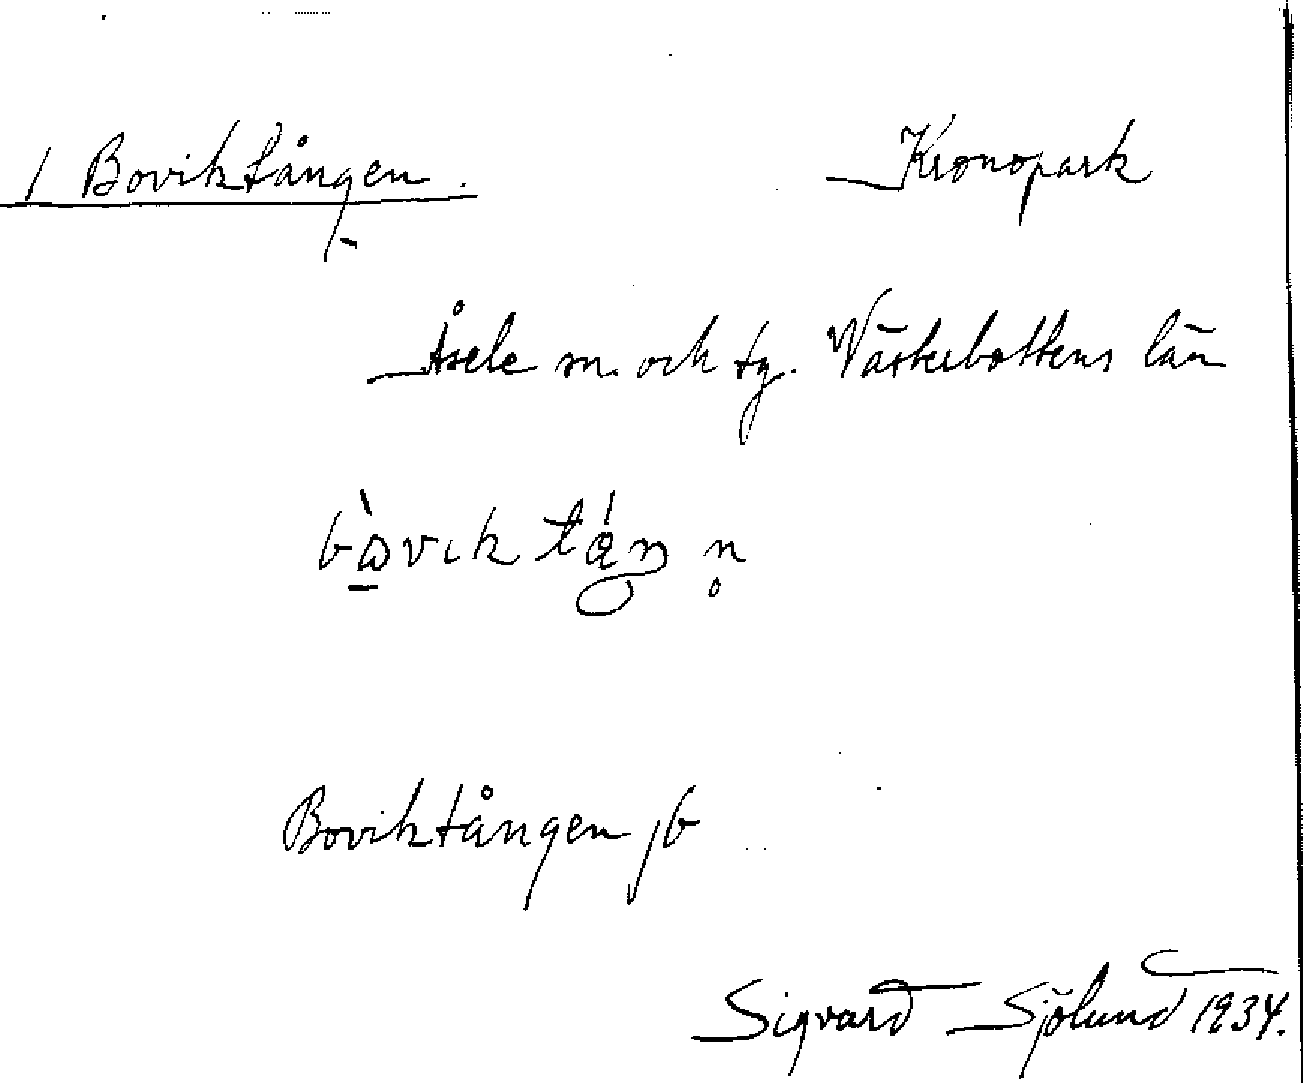 1 Boviktången. Kronopark
Åsele sn. och tg. Västerbottens län
Boviktången jb
Sigvard Sjölund 1934.